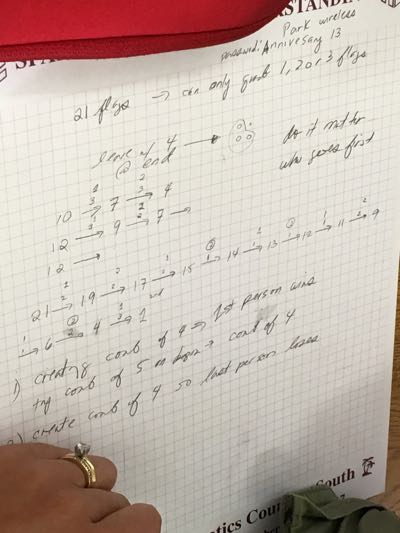 SPA
STANDIN
Park wireless
password: Annivesary 13
21 flags → can only grab 1, 2 or 3 flags
leave w/ 4 →
@ end
do it matter
who goes first
10 → 7 → 4
12 → 9 → 7 →
12 →
21 → 19 → 17 → 15 → 14 → 13 → 12 → 11 → 9
→ 6 → 4 → 1
1) creating comb of 4 ⇒ 1st person wins
try comb of 5 in begin → comb of 4
2) create comb of 4 so last person loses
tics Cou
South